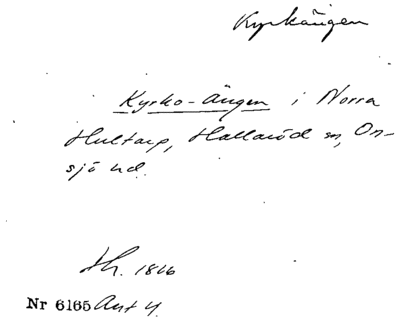 Kyrkängen
Kyrko-Ängen i Norra
Hultarp, Hallaröd sn, On-
sjö hd.
1826
Nr 6165 Ant 4.